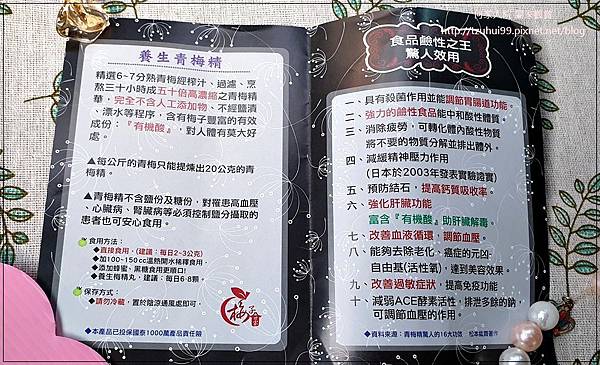 tzuhui99.pixnet.net/blog
養生青梅精
精選6~7分熟青梅經榨汁、過濾、烹
熬三十小時成五十倍高濃縮之青梅精
華，完全不含人工添加物、不經鹽漬
、漂水等程序，含有梅子豐富的有效
成份：『有機酸』，對人體有莫大好
處。
▲每公斤的青梅只能提煉出20公克的青
梅精。
▲青梅精不含鹽份及糖份，對罹患高血壓
、心臟病、腎臟病等必須控制鹽分攝取的
患者也可安心食用。
食用方法：
◆直接食用，(建議：每日2~3公克)
◆加100~150cc溫熱開水稀釋食用，
◆添加蜂蜜、黑糖食用更順口!
◆養生梅精丸，建議：每日6-8顆
保存方式：
◆請勿冷藏，置於陰涼通風處即可，
◆本產品已投保國泰1000萬產品責任險
食品鹼性之王
驚人效用
一、具有殺菌作用並能調節胃腸道功能。
二、強力的鹼性食品能中和酸性體質。
三、消除疲勞，可轉化體內酸性物質
將不要的物質分解並排出體外。
四、減緩精神壓力作用
(日本於2003年發表實驗證實)
五、預防結石，提高鈣質吸收率。
六、強化肝臟功能
富含『有機酸』助肝臟解毒。
七、改善血液循環，調節血壓。
八、能夠去除老化、癌症的元凶-
自由基(活性氧)，達到美容效果。
九、改善過敏症狀，提高免疫功能
十、減弱ACE酵素活性，排泄多餘的鈉
可調節血壓的作用。
◆資料來源：青梅精驚人的16大功效